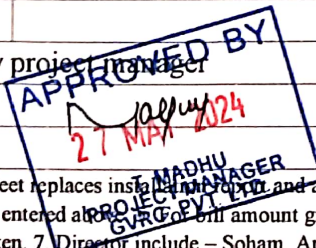 y project manager
APPROVED BY
27 MAY 2024
T. MADHU
PROJECT MANAGER
GVRC PVT. LTD
eet replaces and a
entered bill amount g
ken. 7 Director include – Soham, A